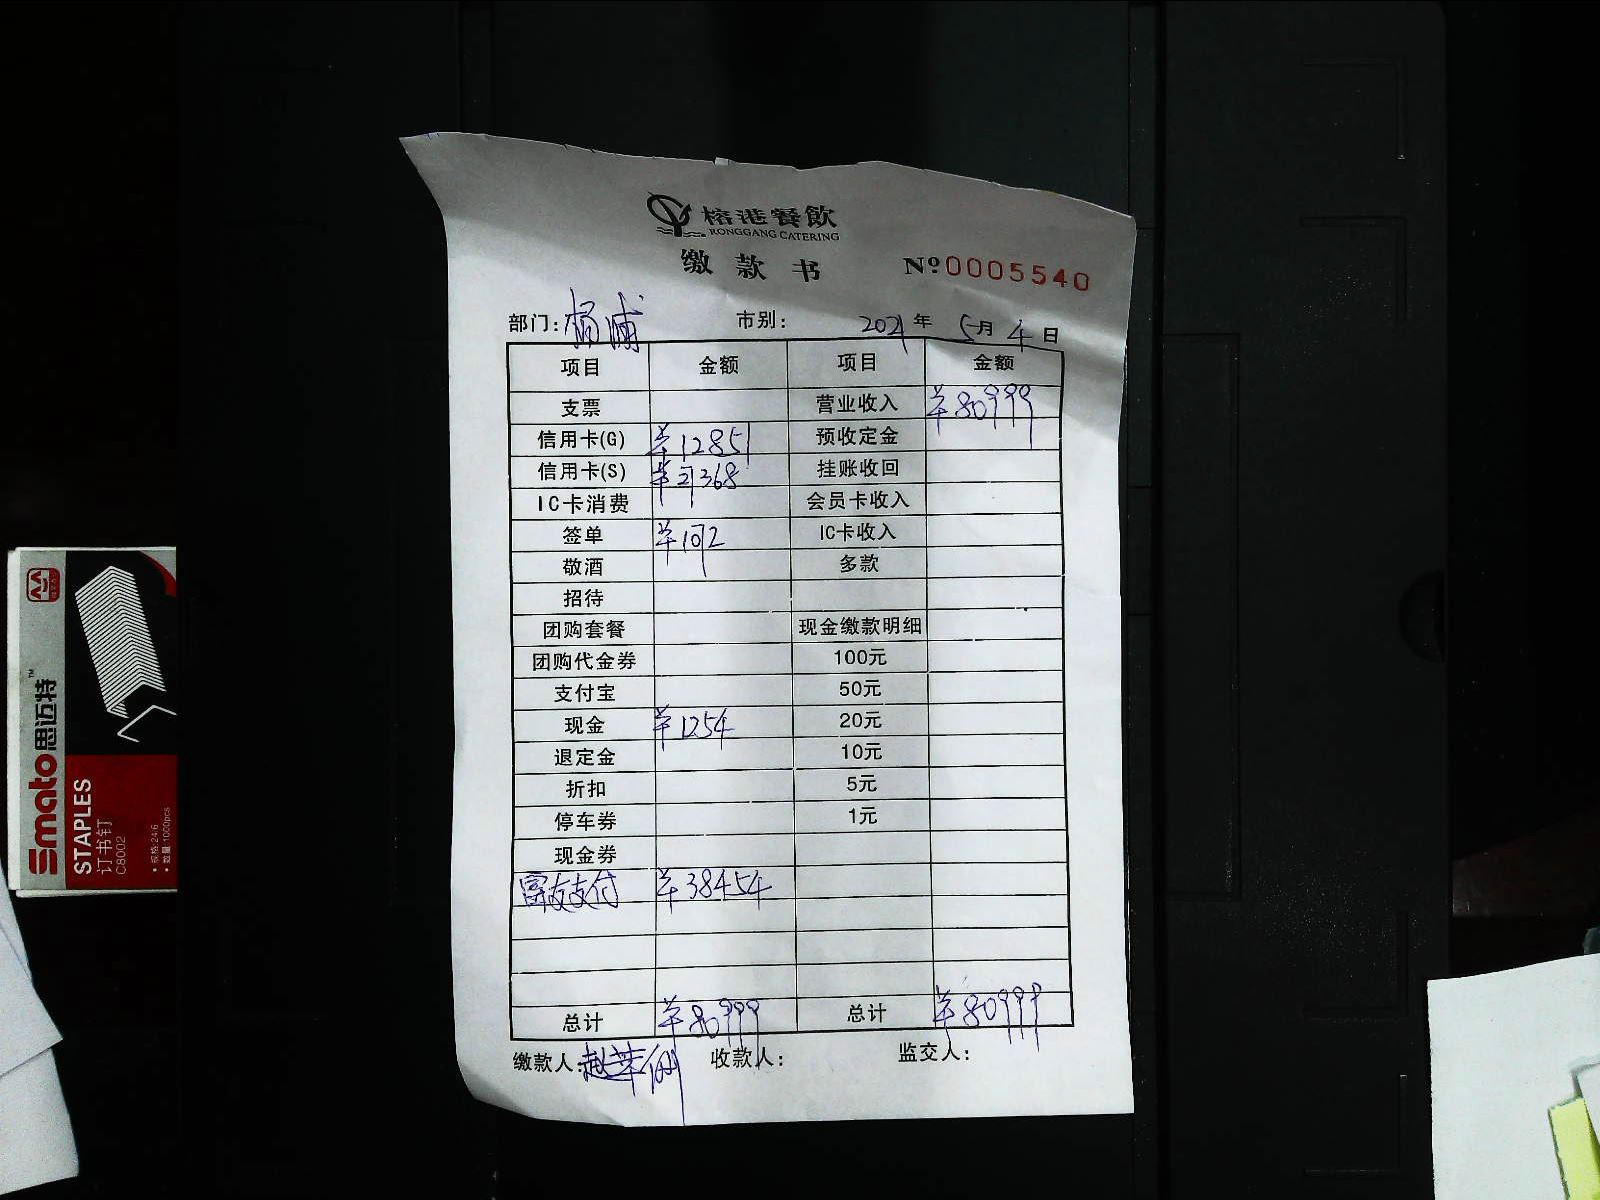 榕港餐飲
RONGGANG CATERING
缴款书 Nº0005540
部门:杨浦 市别: 2021年 5月 4日
项目 金额 项目 金额
支票 营业收入 ¥80999
信用卡(G) ¥12851 预收定金
信用卡(S) ¥27368 挂账收回
IC卡消费 会员卡收入
签单 ¥1072 IC卡收入
敬酒 多款
招待
团购套餐 现金缴款明细
团购代金券 100元
支付宝 50元
现金 ¥1254 20元
退定金 10元
折扣 5元
停车券 1元
现金券
富友支付 ¥38454
总计 ¥80999 总计 ¥80999
缴款人: 收款人: 监交人:
Smato思迈特™
STAPLES
订书钉
C8002
• 规格:24/6
• 数量:1000pcs